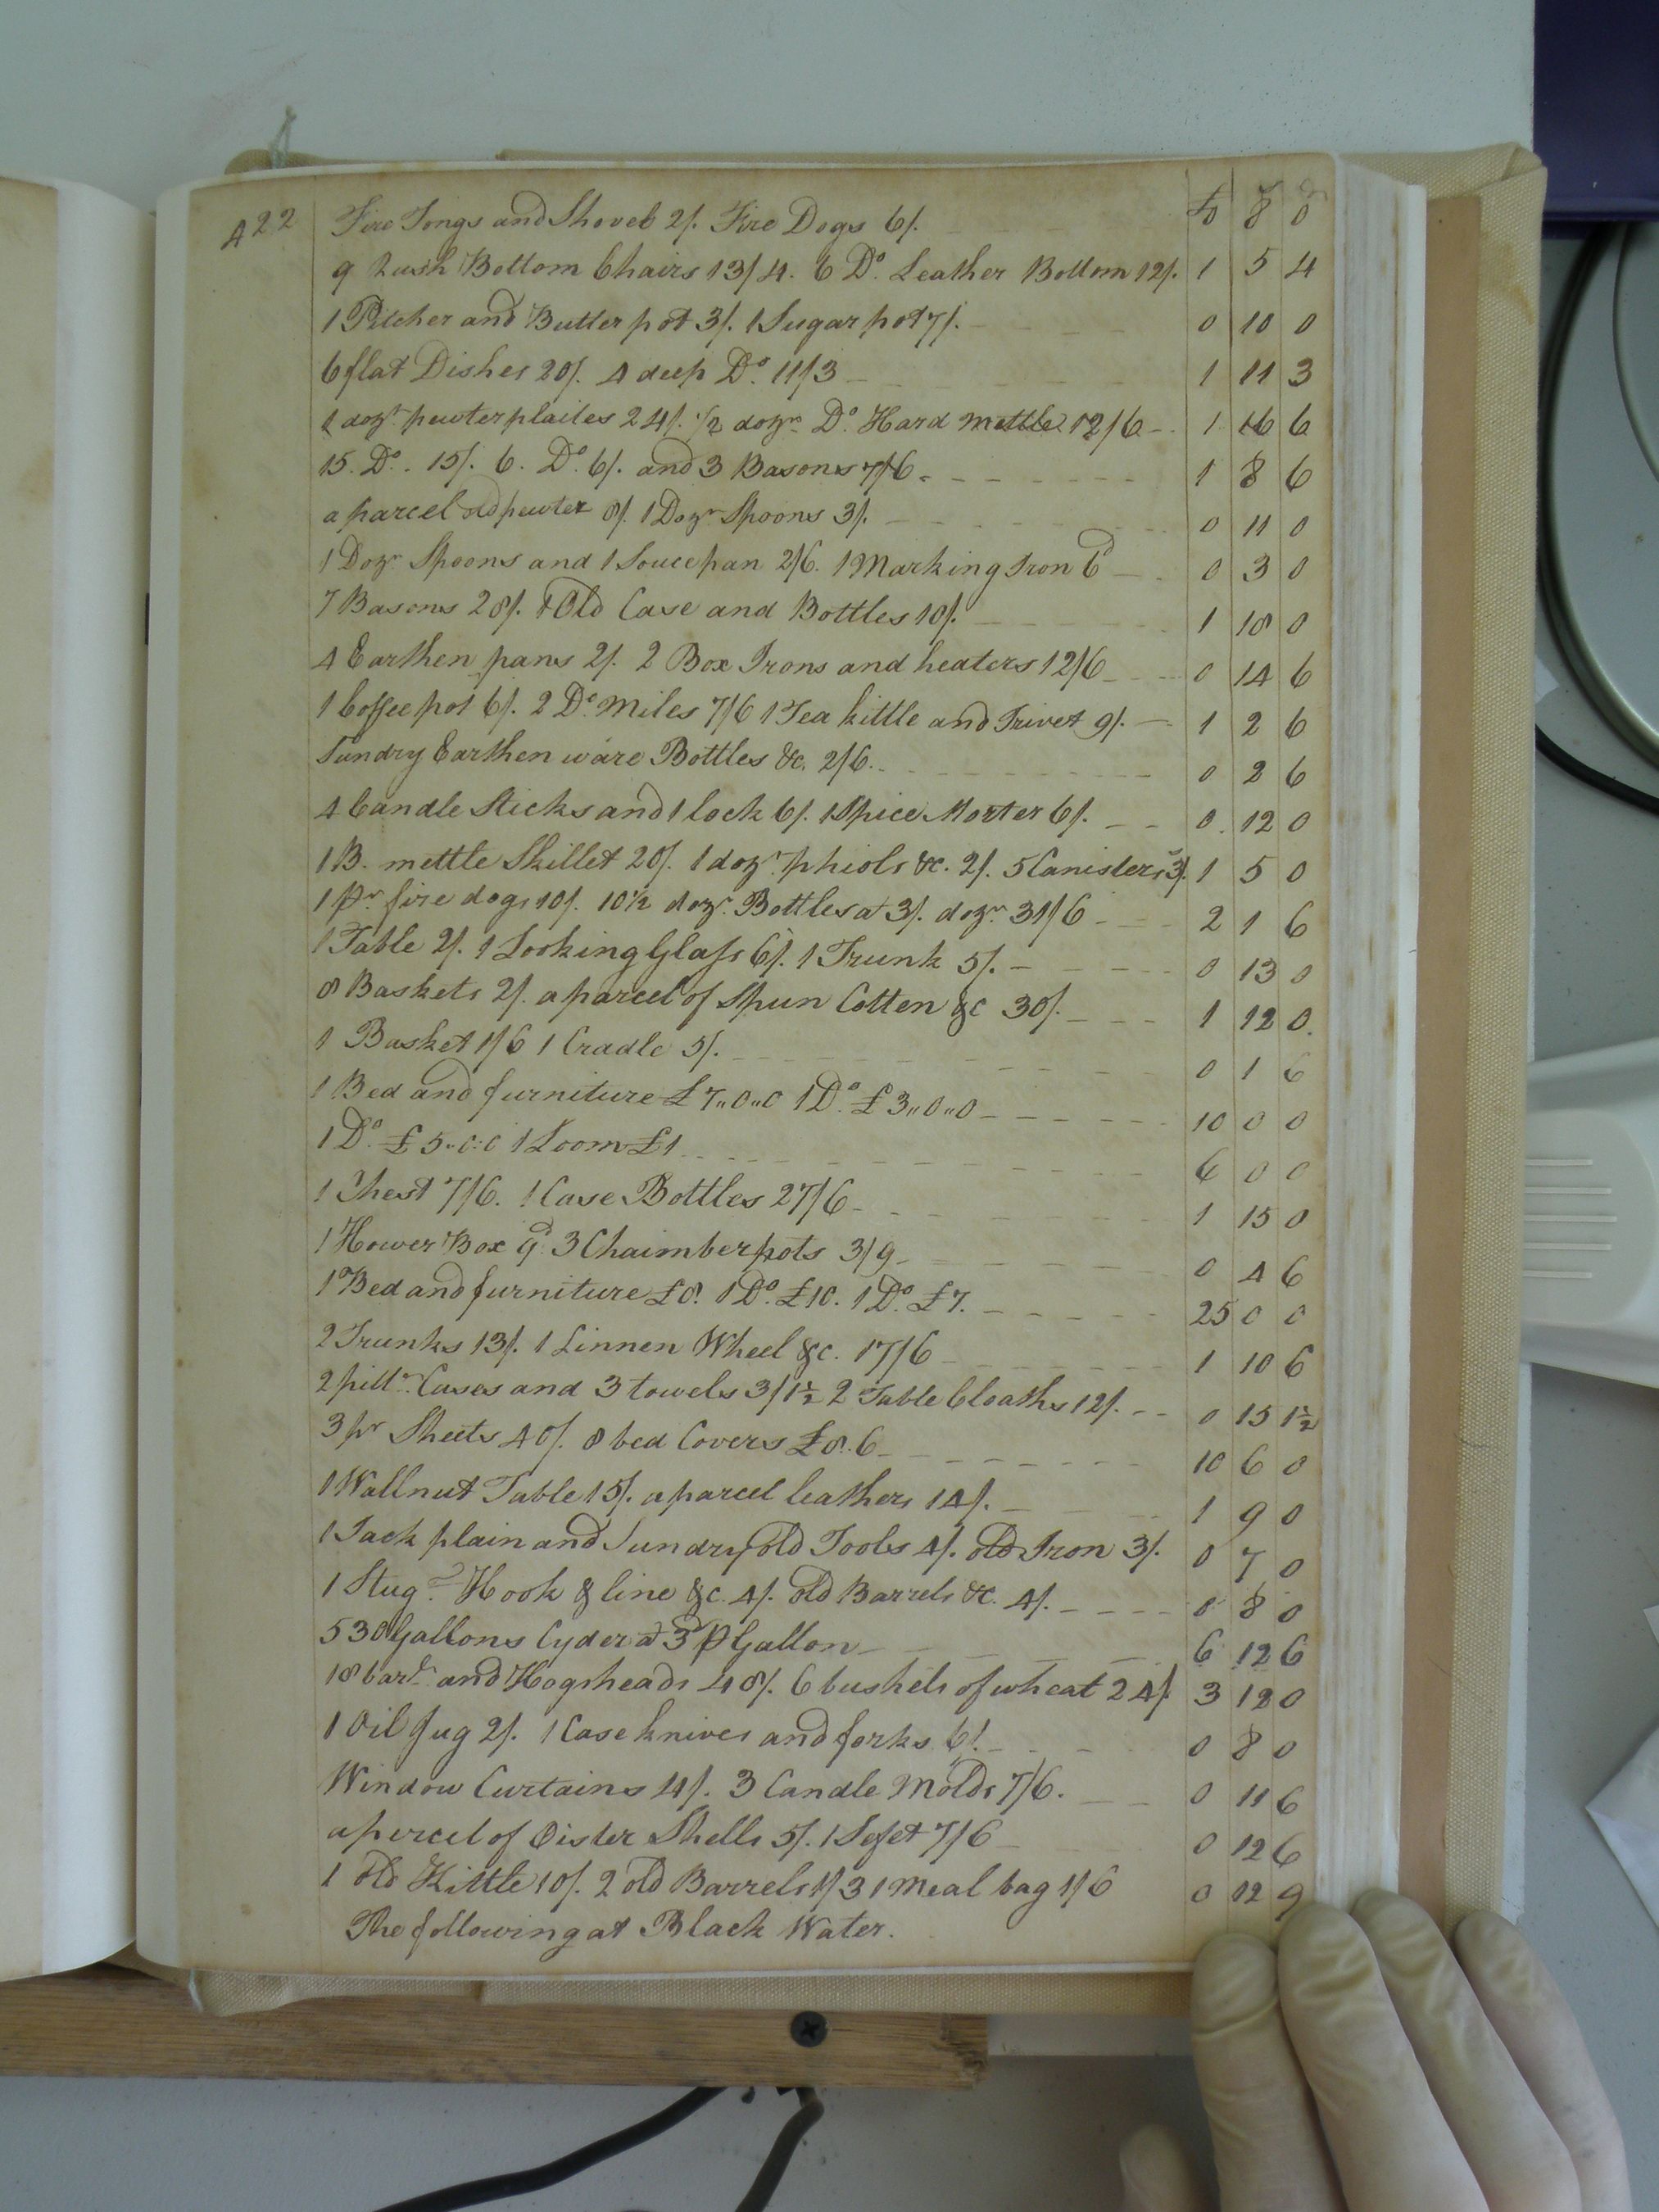 422
£ s d
Fire Tongs and Shovel 2/. Fire Dogs 6/. 0 8 0
9 Rush Bottom Chairs 13/4. 6 Do. Leather Bottom 12/. 1 5 4
1 Pitcher and Butter pot 3/. 1 Sugar pot 7/. 0 10 0
6 flat Dishes 20/. 4 deep Do. 11/3 1 11 3
1 dozn. pewter plaites 24/. 1/2 dozn. Do. Hard Mettle 12/6 1 16 6
15. Do. 15/. 6. Do. 6/. and 3 Basons 7/6. 1 8 6
a parcel old pewter 8/. 1 Dozn Spoons 3/. 0 11 0
1 Dozn. Spoons and 1 Soucepan 2/6. 1 Marking Iron 6d 0 3 0
7 Basons 28/. 1 Old Case and Bottles 10/. 1 18 0
4 Earthen pans 2/. 2 Box Irons and heaters 12/6 0 14 6
1 Coffee pot 6/. 2 Do. Miles 7/6 1 Tea kittle and Trivet 9/. 1 2 6
Sundry Earthen ware Bottles &c. 2/6. 0 2 6
4 Candle Sticks and 1 lock 6/. 1 Spice Morter 6/. 0 12 0
1 B. mettle Skillet 20/. 1 dozn. phiols &c. 2/. 5 Canisters 3/. 1 5 0
1 pr. fire dogs 10/. 10 1/2 dozn. Bottles at 3/. dozn. 31/6 2 1 6
1 Table 2/. 1 Looking Glass 6/. 1 Trunk 5/. 0 13 0
8 Baskets 2/. a parcel of Spun Cotten &c 30/. 1 12 0.
1 Basket 1/6 1 Cradle 5/. 0 1 6
1 Bed and furniture £7,,0,,0 1 Do. £3,,0,,0 10 0 0
1 Do. £5..0:0 1 Loom £1 6 0 0
1 Chest 7/6. 1 Case Bottles 27/6 1 15 0
1 Hower Box 9d. 3 Chaimber pots 3/9 0 4 6
1 Bed and furniture £8. 1 Do. £10. 1 Do. £7. 25 0 0
2 Trunks 13/. 1 Linnen Wheel &c. 17/6 1 10 6
2 pillr. Cases and 3 towels 3/1 1/2 2 Table Cloaths 12/. 0 15 1 1/2
3 pr Sheets 40/. 8 bed Covers £8..6 10 6 0
1 Wallnut Table 15/. a parcel leathers 14/. 1 9 0
1 Jack plain and Sundry old Tools 4/. old Iron 3/. 0 7 0
1 Hook & line &c. 4/. old Barrels &c. 4/. 0 8 0
530 Gallons Cyder at 3d ℔ Gallon 6 12 6
18 barls. and Hogsheads 48/. 6 bushels of wheat 24/. 3 12 0
1 Oil Jug 2/. 1 Case knives and forks 6/. 0 8 0
Window Curtains 4/. 3 Candle Molds 7/6. 0 11 6
a percel of Oister Shells 5/. 1 7/6 0 12 6
1 old Kittle 10/. 2 old Barrels 1/3 1 Meal bag 1/6 0 12 9
The following at Black Water.